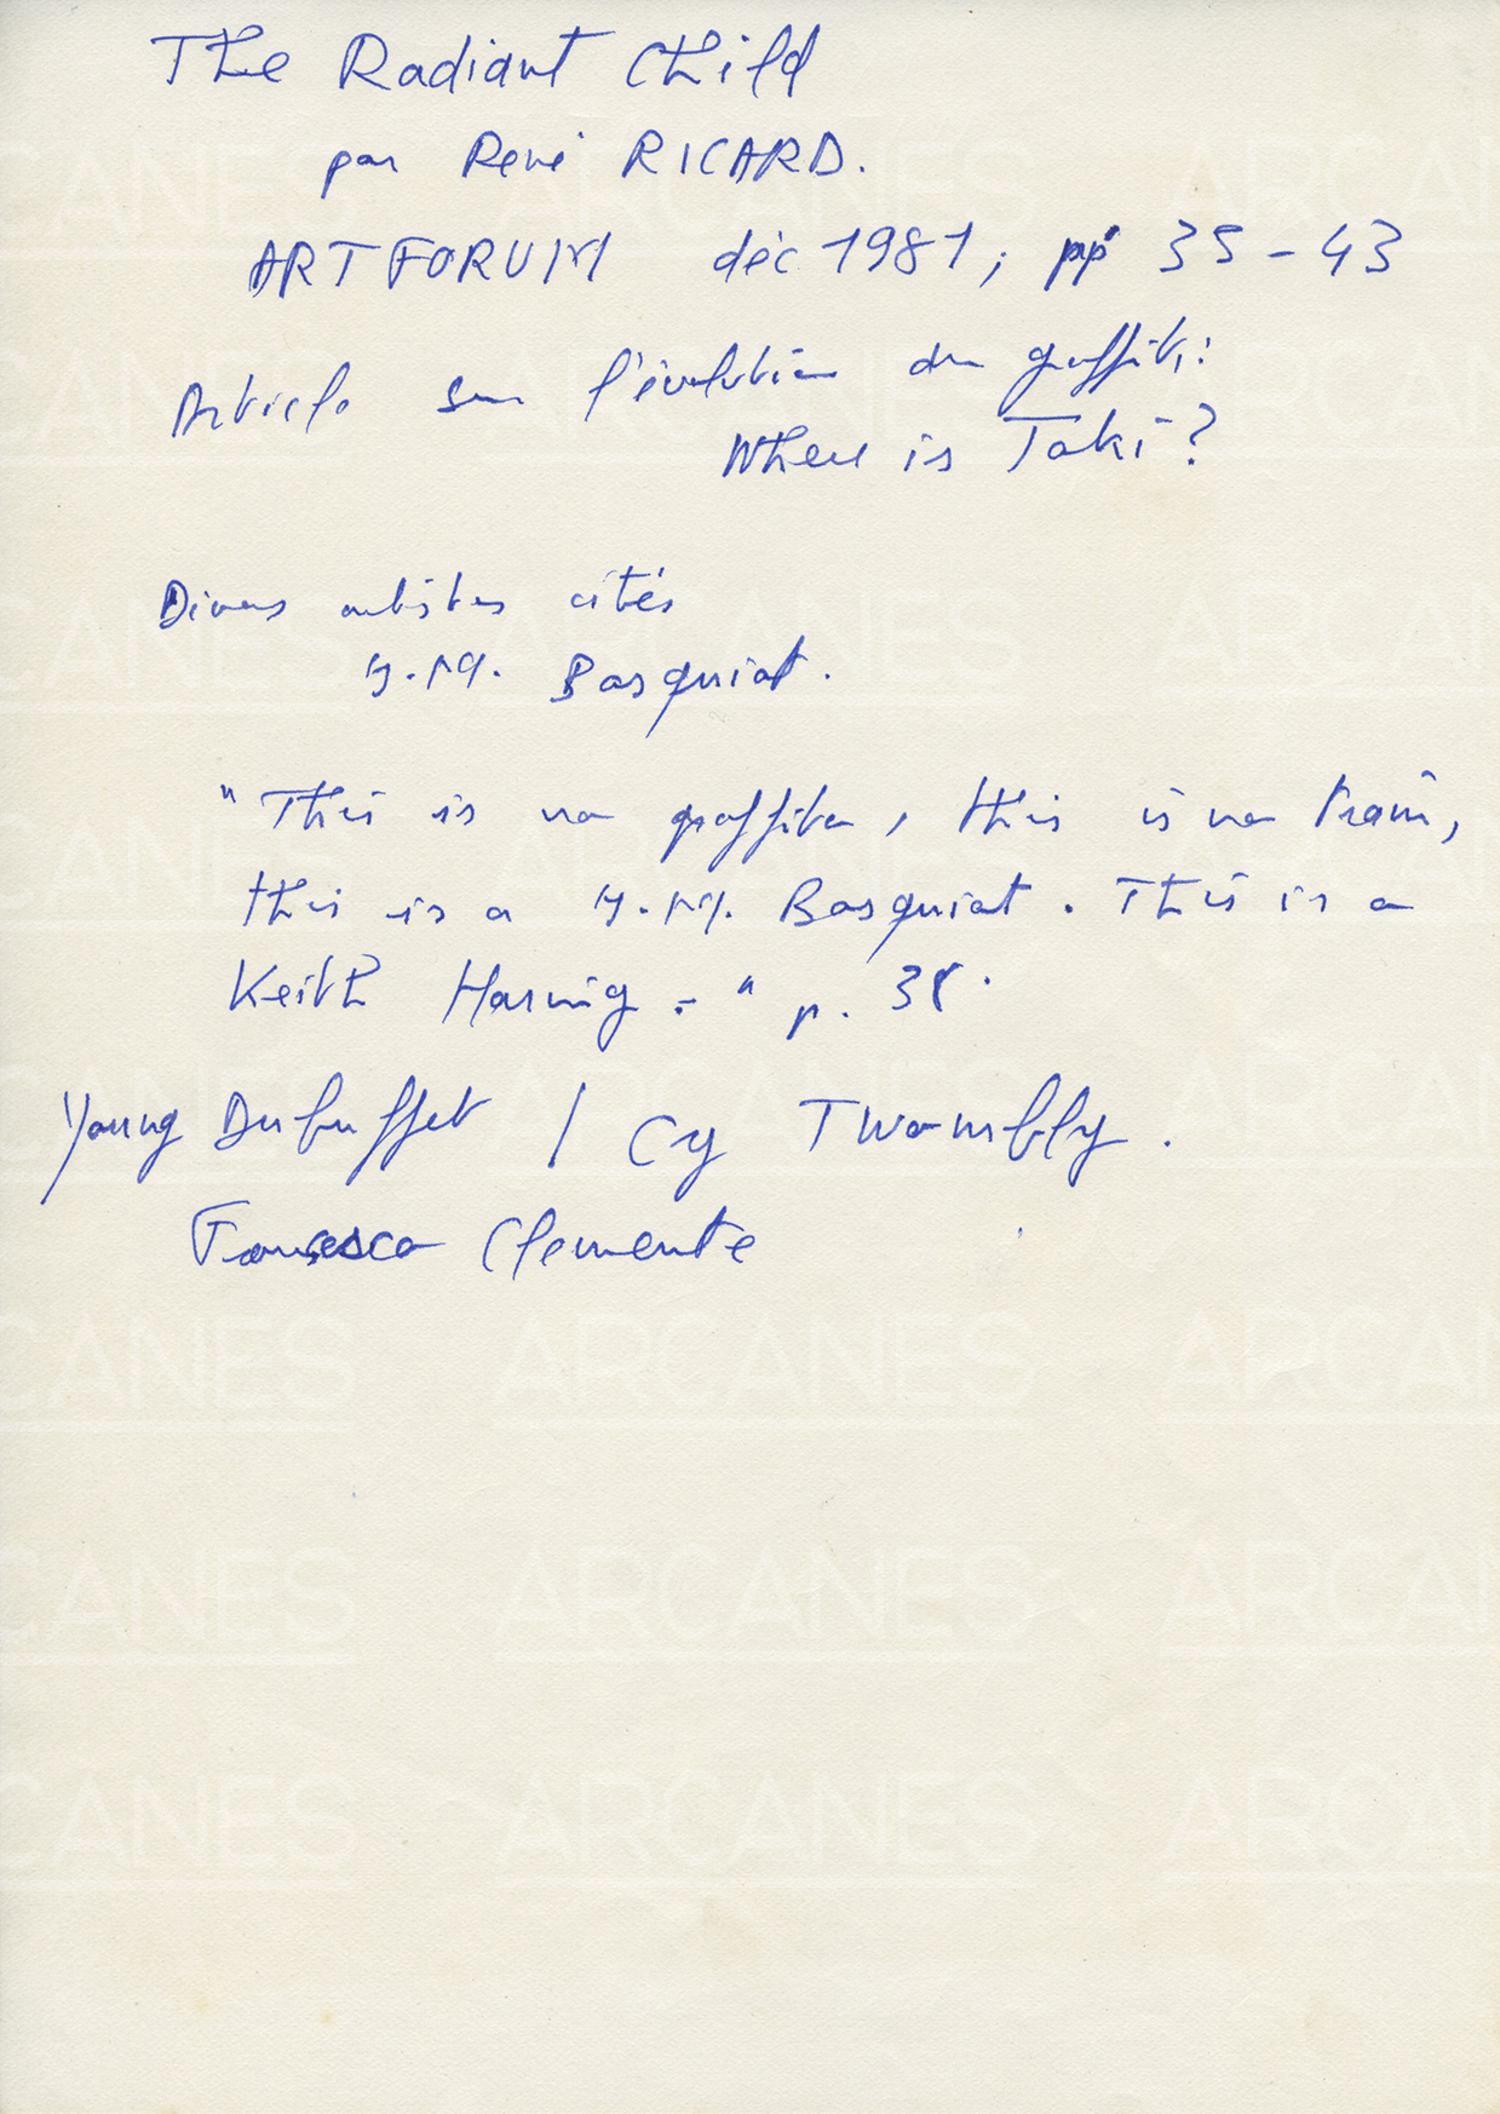 The Radiant Child
par René RICARD.
ARTFORUM déc 1981; pp 35-43
Article sur l'évolution du graffiti:
Where is Taki?
Divers artistes cités
J.M. Basquiat.
"This is no graffito, this is no train,
this is a J.M. Basquiat. This is a
Keith Haring." p. 38.
Young Dubuffet / Cy Twombly.
Francesco Clemente
ARCANES